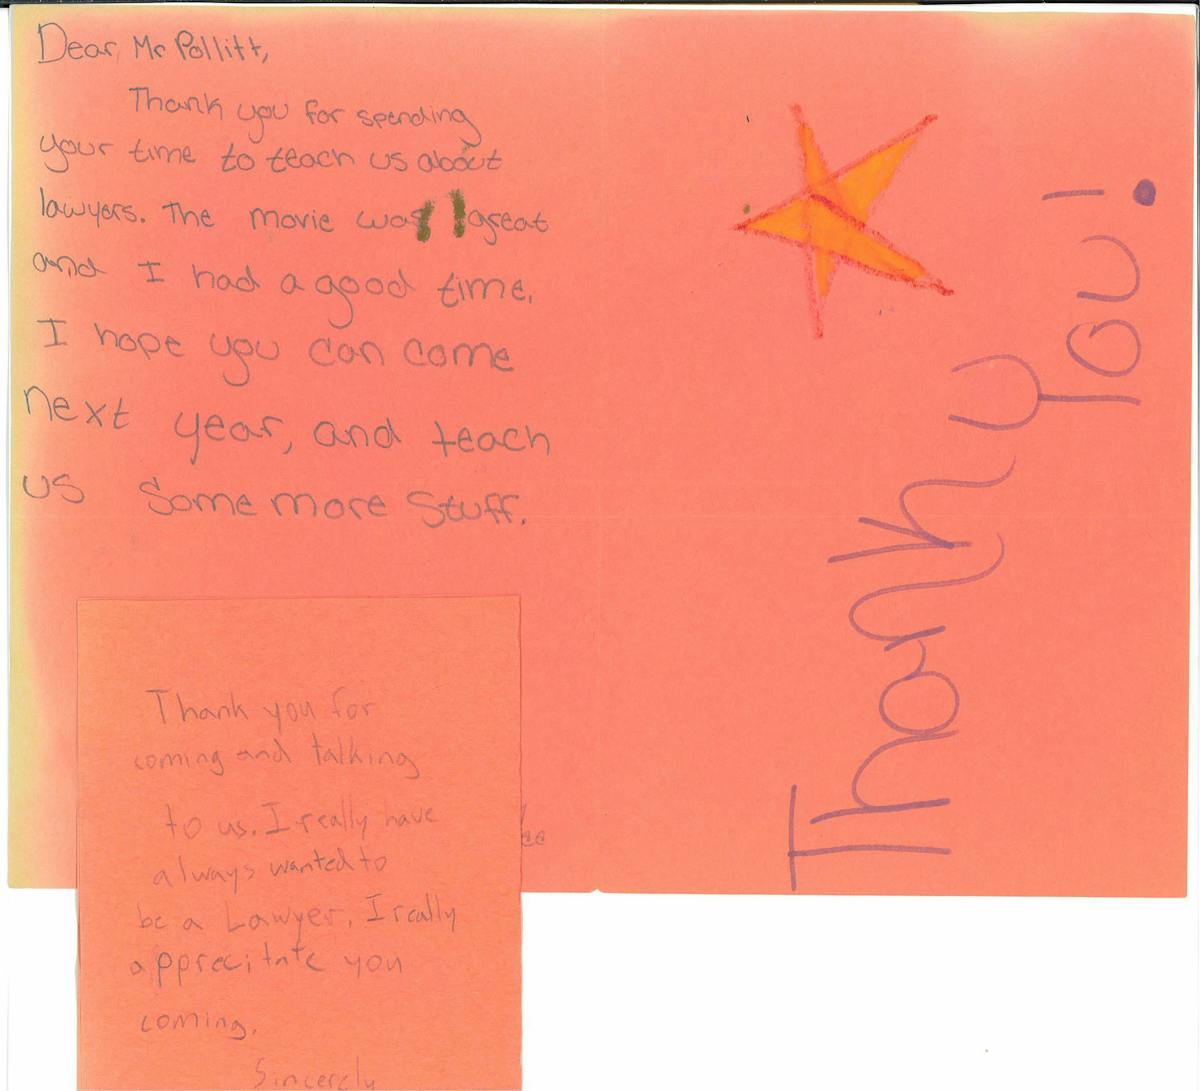 Dear Mr Pollitt,
Thank you for spending
your time to teach us about
lawyers. The movie was great
and I had a good time.
I hope you can come
next year, and teach
us some more stuff.
Thank you for
coming and talking
to us. I really have
always wanted to
be a Lawyer. I really
apprecitate you
coming.
Sincerely
Thank
You!